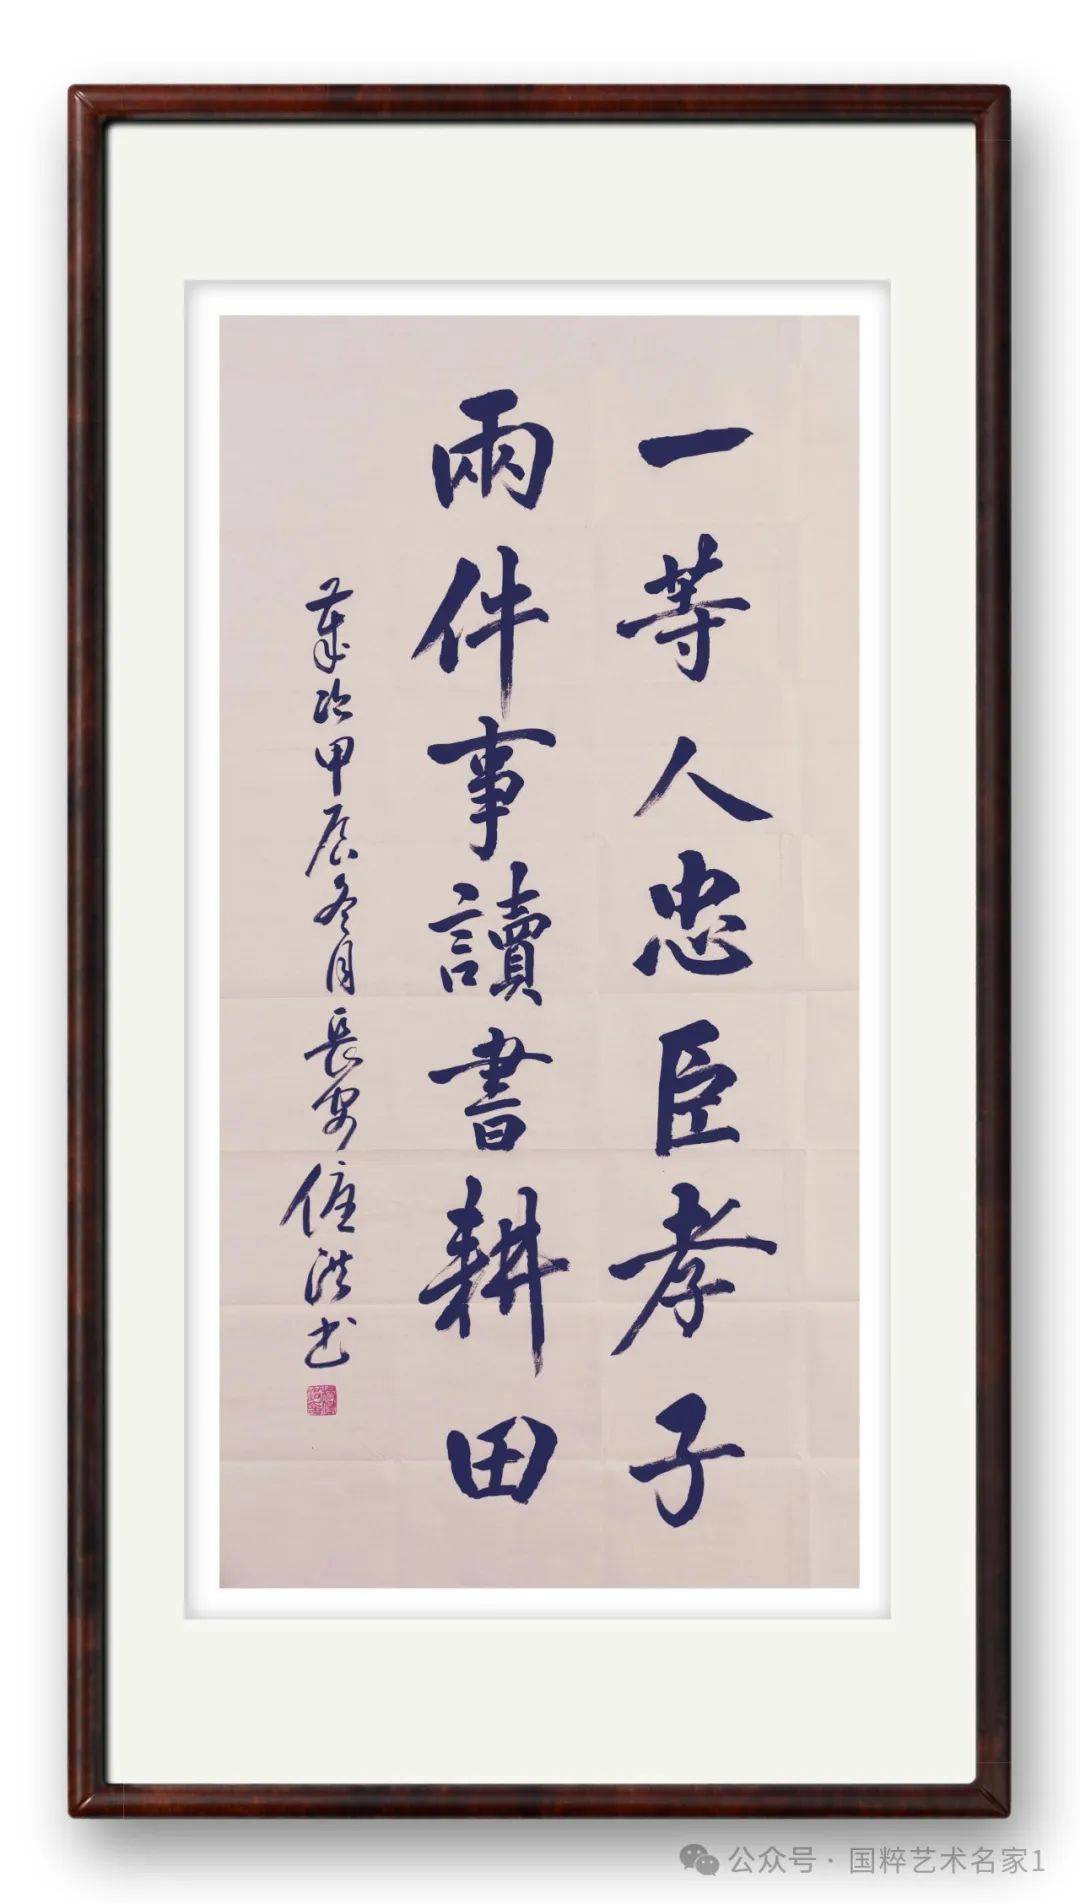 一等人忠臣孝子
兩件事讀書耕田
歲次甲辰冬月長安 洪书
公众号 · 国粹艺术名家1